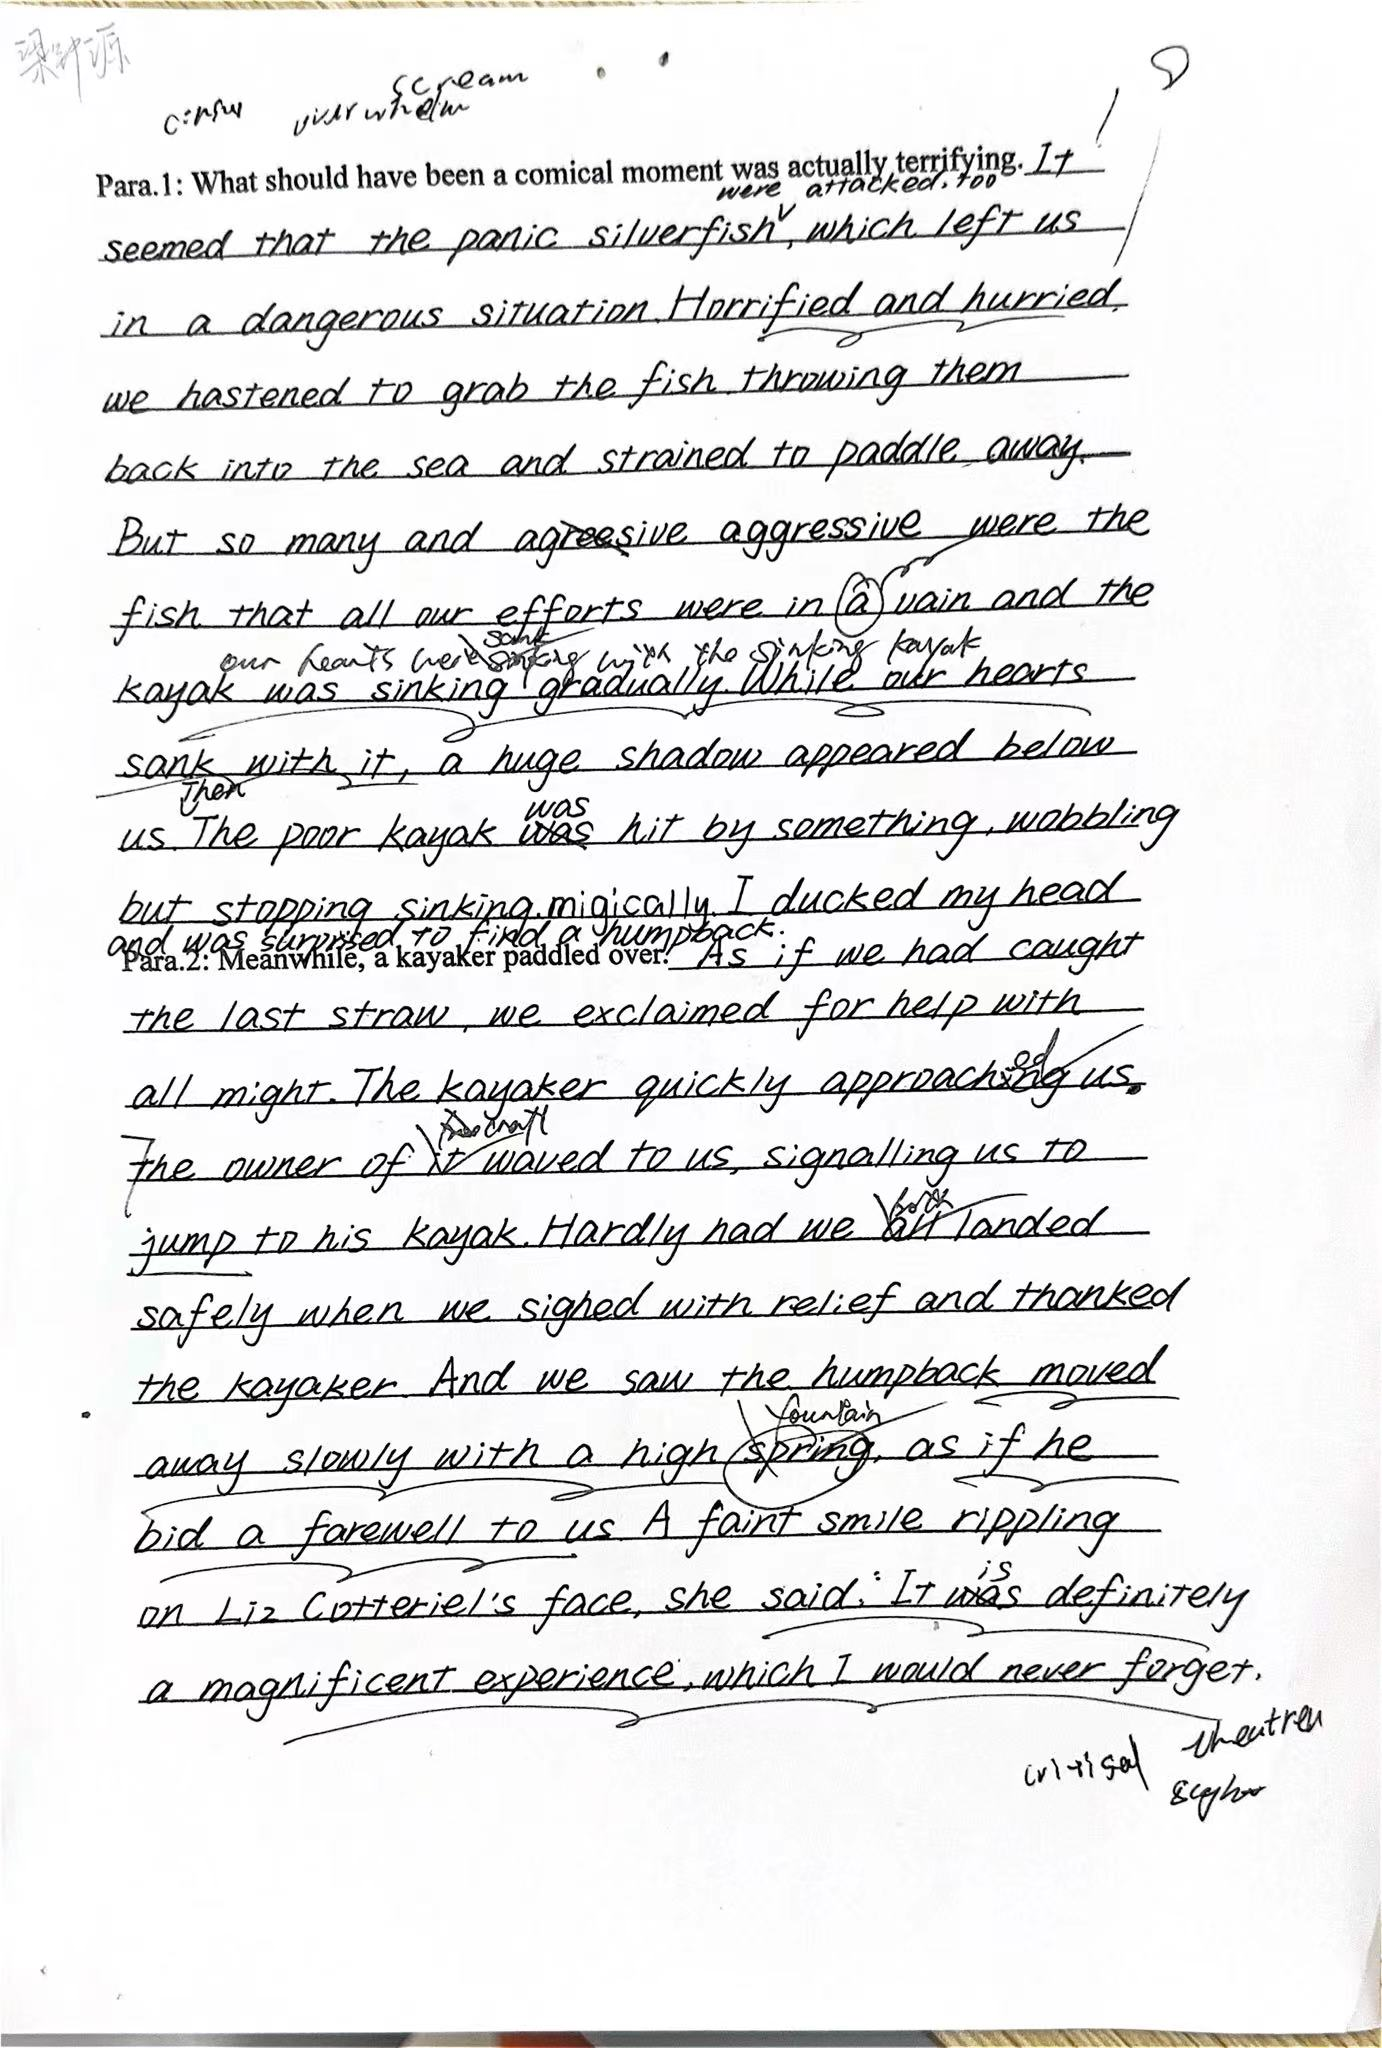 scream
overwhelm
Para.1: What should have been a comical moment was actually terrifying. It
were attacked, too
seemed that the panic silverfish, which left us
in a dangerous situation. Horrified and hurried,
we hastened to grab the fish, throwing them
back into the sea and strained to paddle away.
But so many and agreesive aggressive were the
fish that all our efforts were in a vain and the
sank
our hearts were sinking with the sinking kayak
kayak was sinking gradually. While our hearts
sank with it, a huge shadow appeared below
Then
was
us. The poor kayak was hit by something, wobbling
but stopping sinking migically. I ducked my head
and was surprised to find a humpback.
Para.2: Meanwhile, a kayaker paddled over. As if we had caught
the last straw, we exclaimed for help with
ed
all might. The kayaker quickly approaching us.
the owner of it waved to us, signalling us to
both
jump to his kayak. Hardly had we all landed
safely when we sighed with relief and thanked
the kayaker. And we saw the humpback moved
fountain
away slowly with a high spring, as if he
bid a farewell to us. A faint smile rippling
is
on Liz Cotteriel's face, she said: It was definitely
a magnificent experience, which I would never forget.